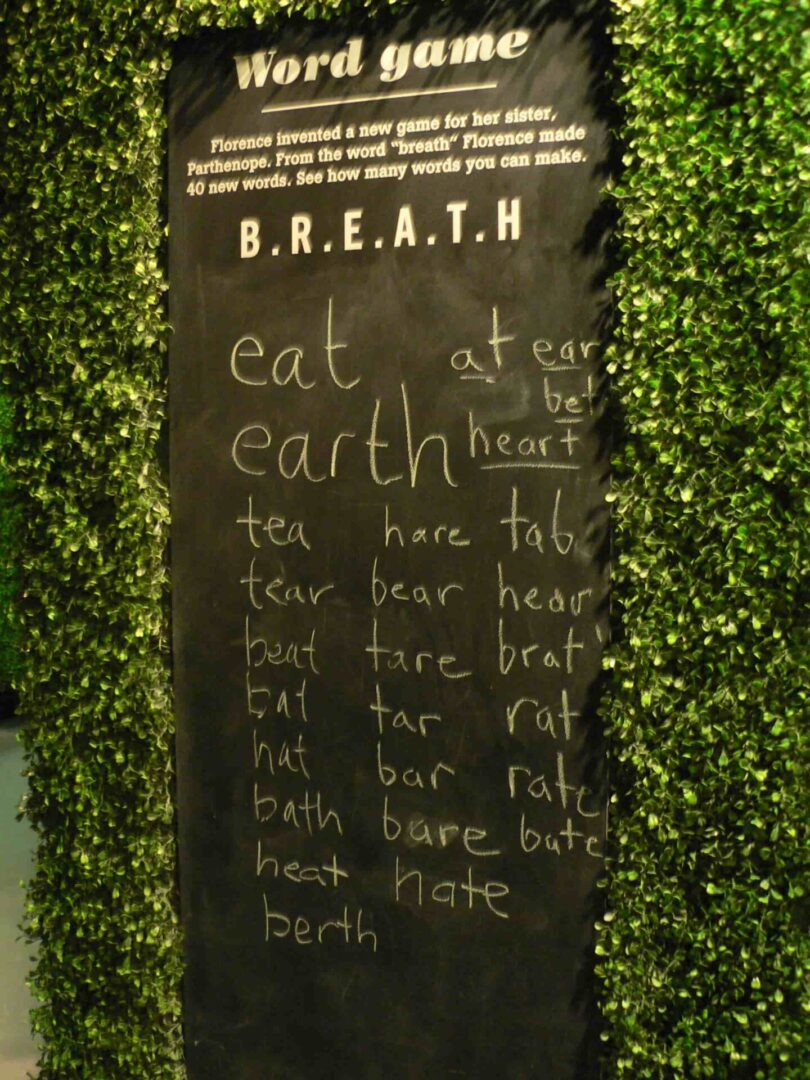 Word game
Florence invented a new game for her sister,
Parthenope. From the word "breath" Florence made
40 new words. See how many words you can make.
B.R.E.A.T.H
eat at ear
bet
earth heart
tea hare tab
tear bear hear
beat tare brat
bat tar rat
hat bar rate
bath bare bate
heat hate
berth